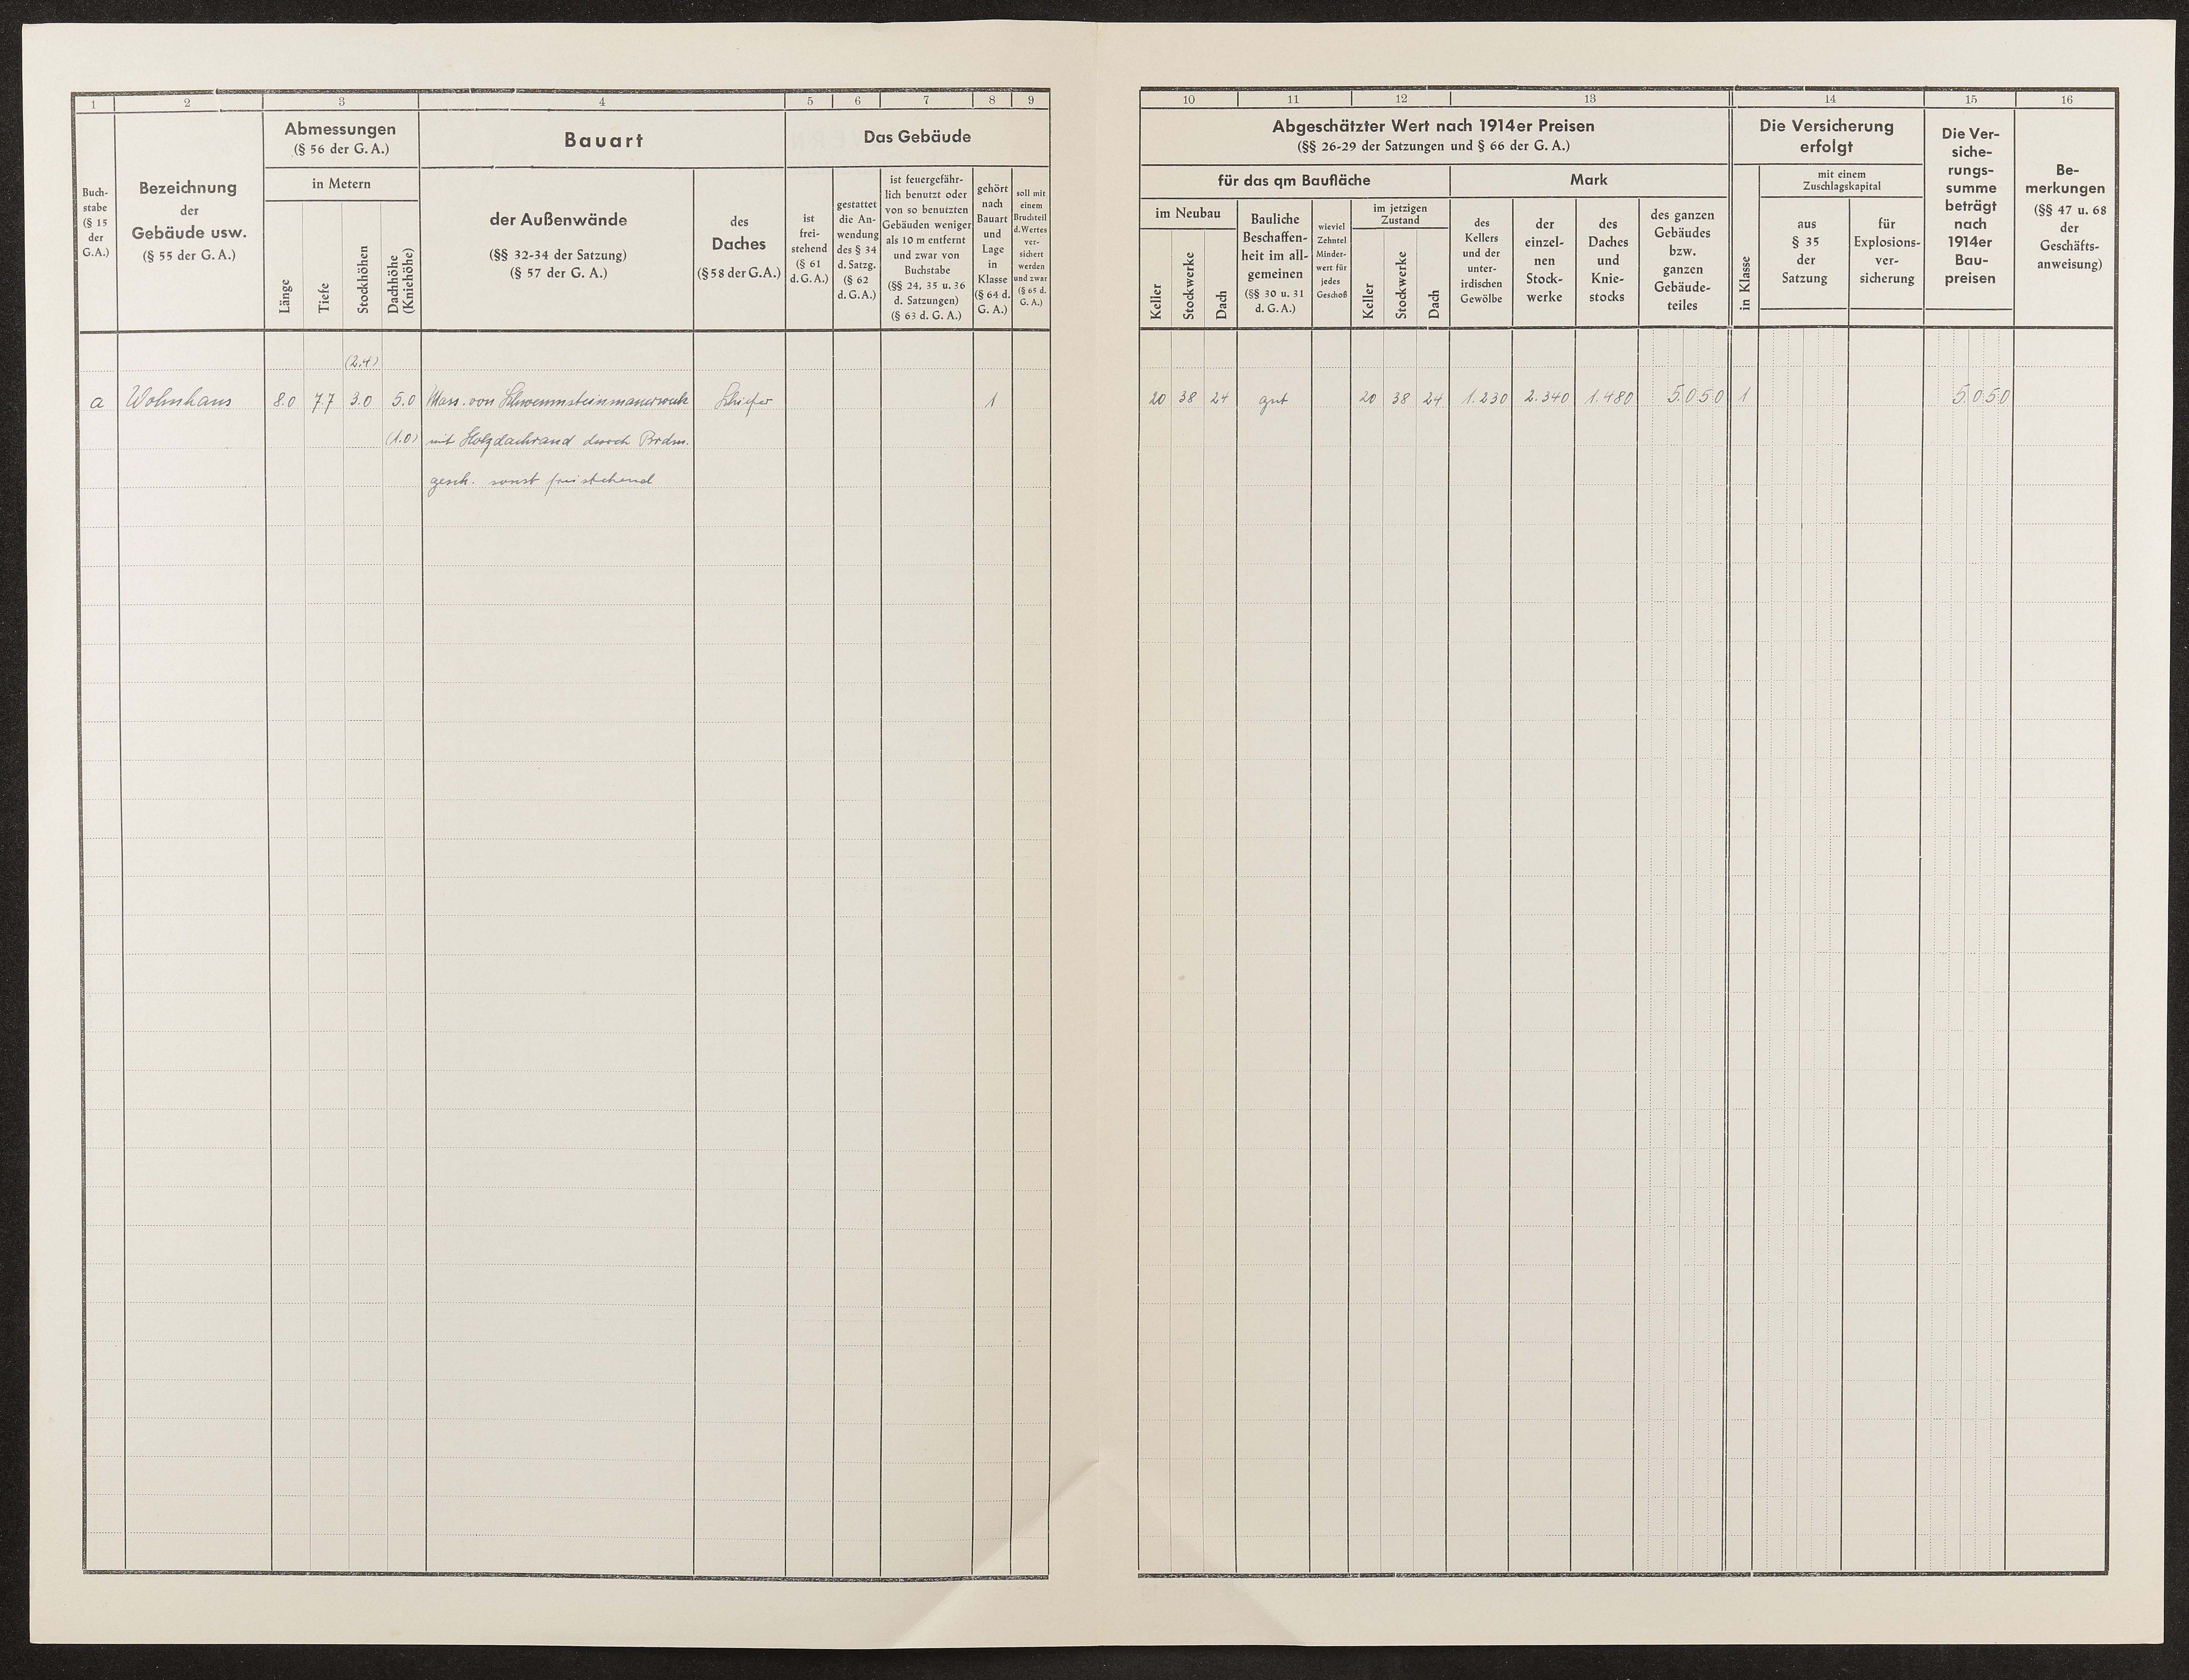 1 2 3 4 5 6 7 8 9
Abmessungen
(§ 56 der G. A.)
Bauart
Das Gebäude
Buch-
stabe
(§ 15
der
G.A.)
Bezeichnung
der
Gebäude usw.
(§ 55 der G. A.)
in Metern
Länge
Tiefe
Stockhöhen
Dachhöhe
(Kniehöhe)
der Außenwände
(§§ 32-34 der Satzung)
(§ 57 der G. A.)
des
Daches
(§ 58 der G. A.)
ist
frei-
stehend
(§ 61
d. G. A.)
gestattet
die An-
wendung
des § 34
d. Satzg.
(§ 62
d. G. A.)
ist feuergefähr-
lich benutzt oder
von so benutzten
Gebäuden weniger
als 10 m entfernt
und zwar von
Buchstabe
(§§ 24, 35 u. 36
d. Satzungen)
(§ 63 d. G. A.)
gehört
nach
Bauart
und
Lage
in
Klasse
(§ 64 d.
G. A.)
soll mit
einem
Bruchteil
d. Wertes
ver-
sichert
werden
und zwar
(§ 65 d.
G. A.)
(2.4)
a Wohnhaus 8.0 7.7 3.0 5.0 Mass. von Schwemmsteinmauerwerk Schiefer 1
(1.0) mit Holzdachrand durch Brdm.
gesch. sonst freistehend
10 11 12 13 14 15 16
Abgeschätzter Wert nach 1914er Preisen
(§§ 26-29 der Satzungen und § 66 der G. A.)
für das qm Baufläche
Mark
im Neubau
Keller
Stockwerke
Dach
Bauliche
Beschaffen-
heit im all-
gemeinen
(§§ 30 u. 31
d. G. A.)
wieviel
Zehntel
Minder-
wert für
jedes
Geschoß
im jetzigen
Zustand
Keller
Stockwerke
Dach
des
Kellers
und der
unter-
irdischen
Gewölbe
der
einzel-
nen
Stock-
werke
des
Daches
und
Knie-
stocks
des ganzen
Gebäudes
bzw.
ganzen
Gebäude-
teiles
Die Versicherung
erfolgt
in Klasse
mit einem
Zuschlagskapital
aus
§ 35
der
Satzung
für
Explosions-
ver-
sicherung
Die Ver-
siche-
rungs-
summe
beträgt
nach
1914er
Bau-
preisen
Be-
merkungen
(§§ 47 u. 68
der
Geschäfts-
anweisung)
20 38 24 gut 20 38 24 1.230 2.340 1.480 5.050 1 5.050